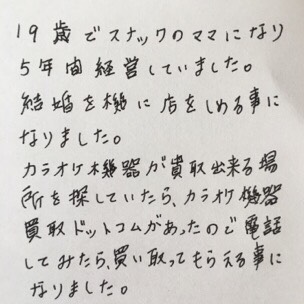 19歳でスナックのママになり
5年間経営していました。
結婚を機に店をしめる事に
なりました。
カラオケ機器が買取出来る場
所を探していたら、カラオケ機器
買取ドットコムがあったので電話
してみたら、買い取ってもらえる事に
なりました。